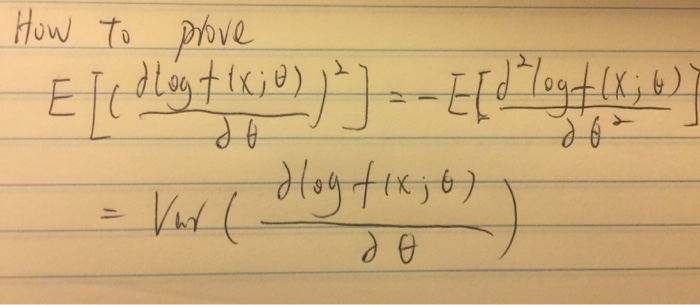 How to prove
E[(∂log f(x;θ)/∂θ)²] = -E[∂²log f(x;θ)/∂θ²]
= Var(∂log f(x;θ)/∂θ)